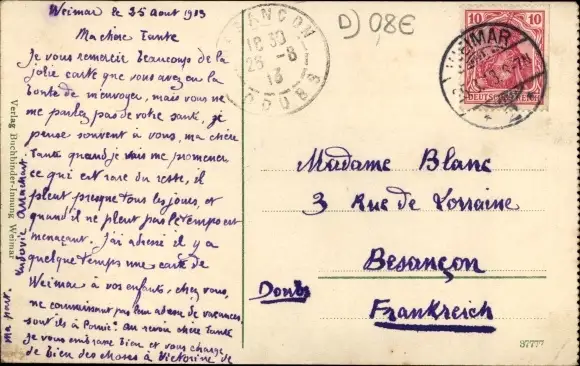 Weimar le 25 Août 1913
Ma chère Tante
Je vous remercie beaucoup de la
jolie carte que vous avez eu la
bonté de m'envoyer, mais vous ne
me parlez pas de votre santé, je
pense souvent à vous, ma chère
Tante quand je vais me promener,
ce qui est rare du reste, il
pleut presque tous les jours, et
quand il ne pleut pas le temps est
menaçant. J'ai adressé il y a
quelque temps une carte de
Weimar à vos enfants, chez vous,
ne connaissant pas leur adresse de vacances,
sont ils à ? Au revoir chère Tante
je vous embrasse bien et vous charge
de bien des choses à Victorine de
ma part. Ludovic
Verlag Buchbinder-Innung Weimar
BESANÇON
18 30
26 - 8
13
DOUBS
D) 08€
10 10
DEUTSCHES REICH
WEIMAR
2
Madame Blanc
3 Rue de Lorraine
Besançon
Doubs
Frankreich
37777